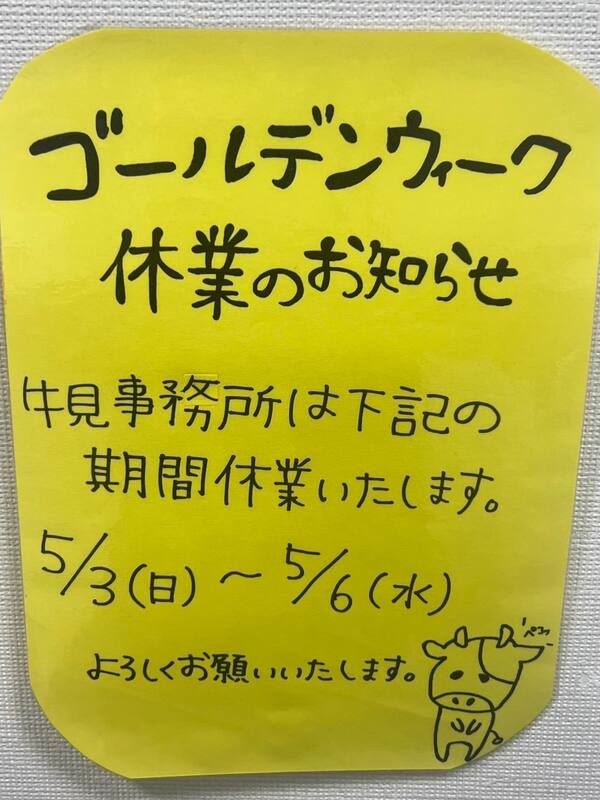 ゴールデンウィーク
休業のお知らせ
牛見事務所は下記の
期間休業いたします。
5/3(日)～5/6(水)
よろしくお願いいたします。
ペコッ